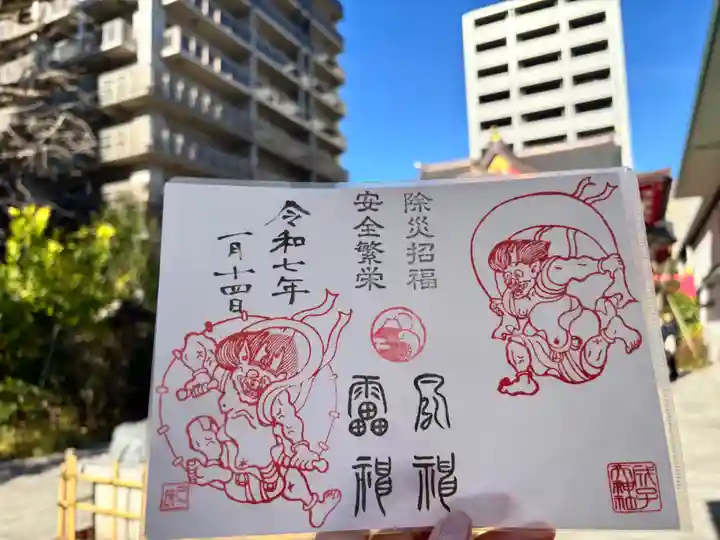 除災招福
安全繁栄
風神
雷神
令和七年
一月十四日
成子
天神社